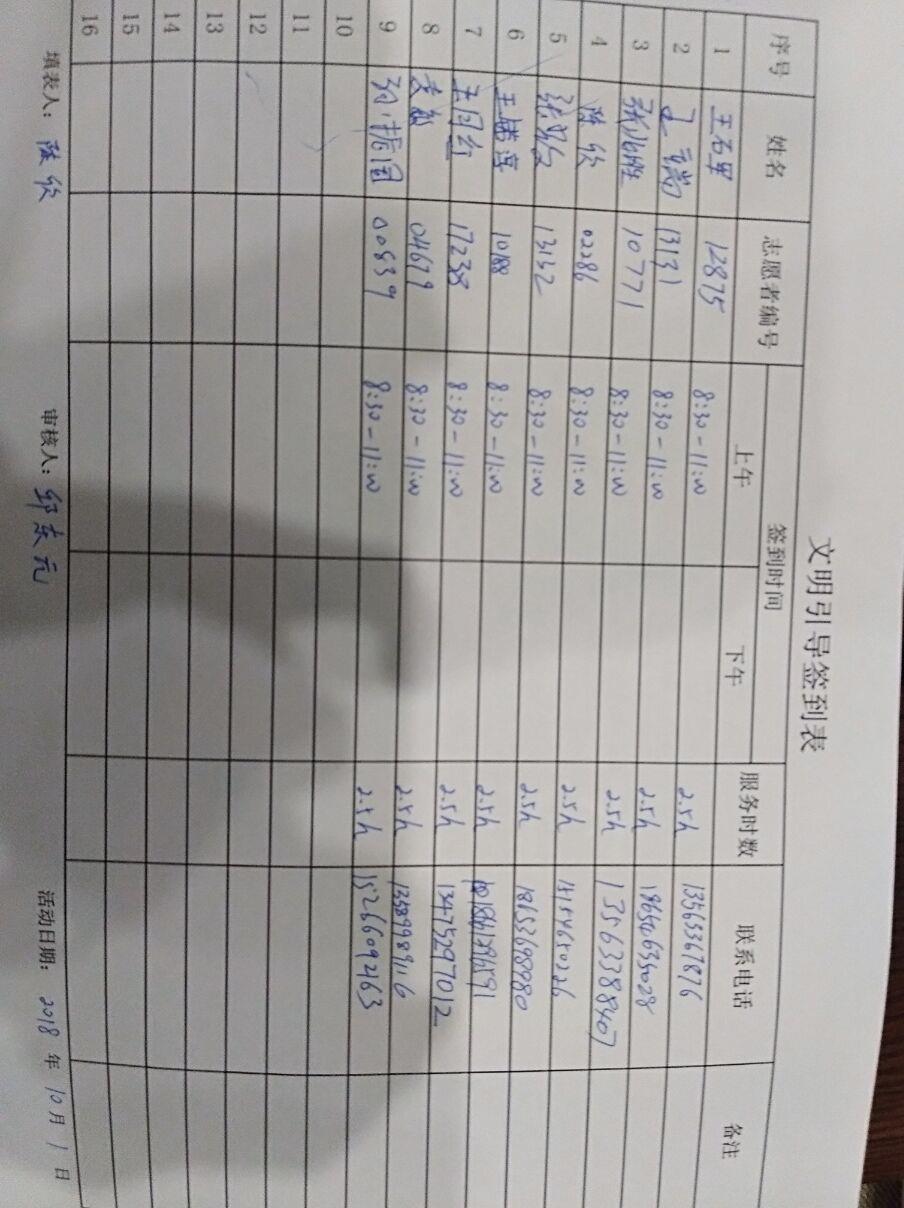 文明引导签到表
序号 姓名 志愿者编号 签到时间 服务时数 联系电话 备注
上午 下午
1 王 12875 8:30-11:00 2.5h 13563367876
2 13131 8:30-11:00 2.5h
3 张 胜 10771 8:30-11:00 2.5h 13563388407
4 陈欣 02286 8:30-11:00 2.5h
5 张 13132 8:30-11:00 2.5h 18653698980
6 王 10188 8:30-11:00 2.5h
7 王月红 17238 8:30-11:00 2.5h 13475297012
8 04679 8:30-11:00 2.5h 13589989116
9 孙振国 00839 8:30-11:00 2.5h 15266092163
10
11
12
13
14
15
16
填表人：陈欣 审核人：邱东元 活动日期：2018年10月1日